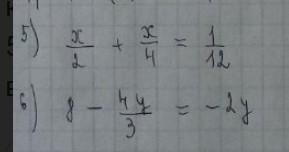 5) x/2 + x/4 = 1/12
6) 8 - 4y/3 = -2y